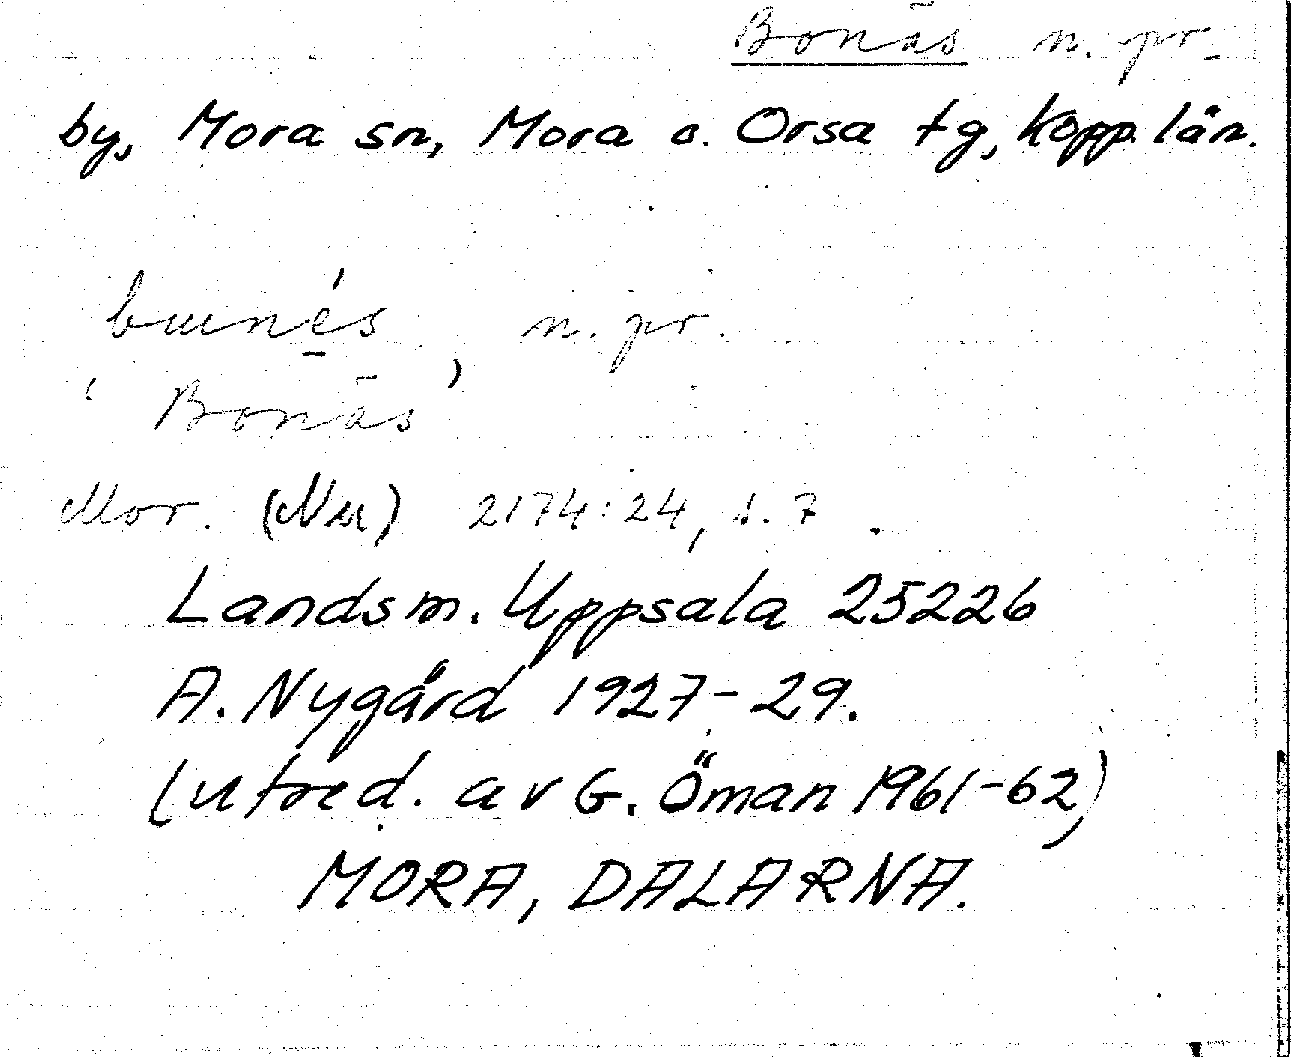 Bonäs n. pr.
by, Mora sn, Mora o. Orsa tg, Kopp. län.
n. pr.
' Bonäs '
Mor. (Nu) 2174:24, s. 7.
Landsm. Uppsala 25226
A. Nygård 1927-29.
(utred. av G. Öman 1961-62)
MORA, DALARNA.